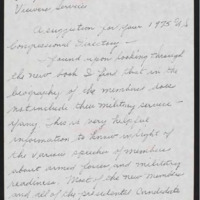 Viewers Services
A suggestion for your 1995 U.S.
Congressional Directory —
I found upon looking through
the new book I find that in the
biography of the members does
not include their military service -
if any. This is very helpful
information to know in light of
the various speeches of members
about armed forces and military
readiness. Most of the new members
and all of the presidential candidate